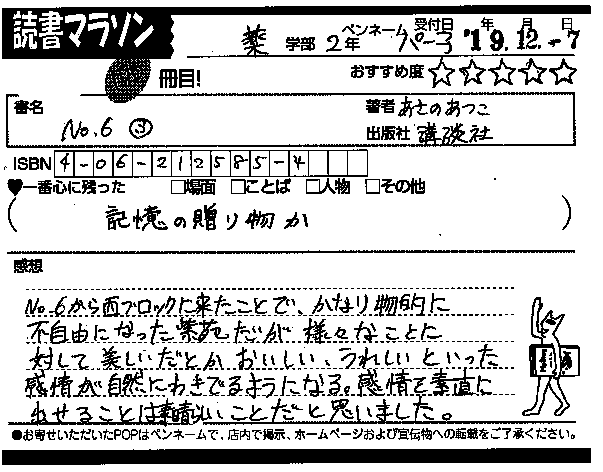 読書マラソン
冊目!
薬 学部 2年 ペンネーム パー子 受付日 '19.12.-7 年 月 日
おすすめ度 ☆☆☆☆☆
書名 No.6 ③
著者 あさのあつこ
出版社 講談社
ISBN 4-06-212585-4
♥一番心に残った □場面 □ことば □人物 □その他
( 記憶の贈り物か )
感想
No.6から西ブロックに来たことで、かなり物的に
不自由になった紫苑だが 様々なことに
対して 美しいだとか おいしい、うれしい といった
感情が自然にわきでるようになる。感情を素直に
れせることは素晴しいことだと思いました。
●お寄せいただいたPOPはペンネームで、店内で掲示、ホームページおよび宣伝物への転載をご了承ください。